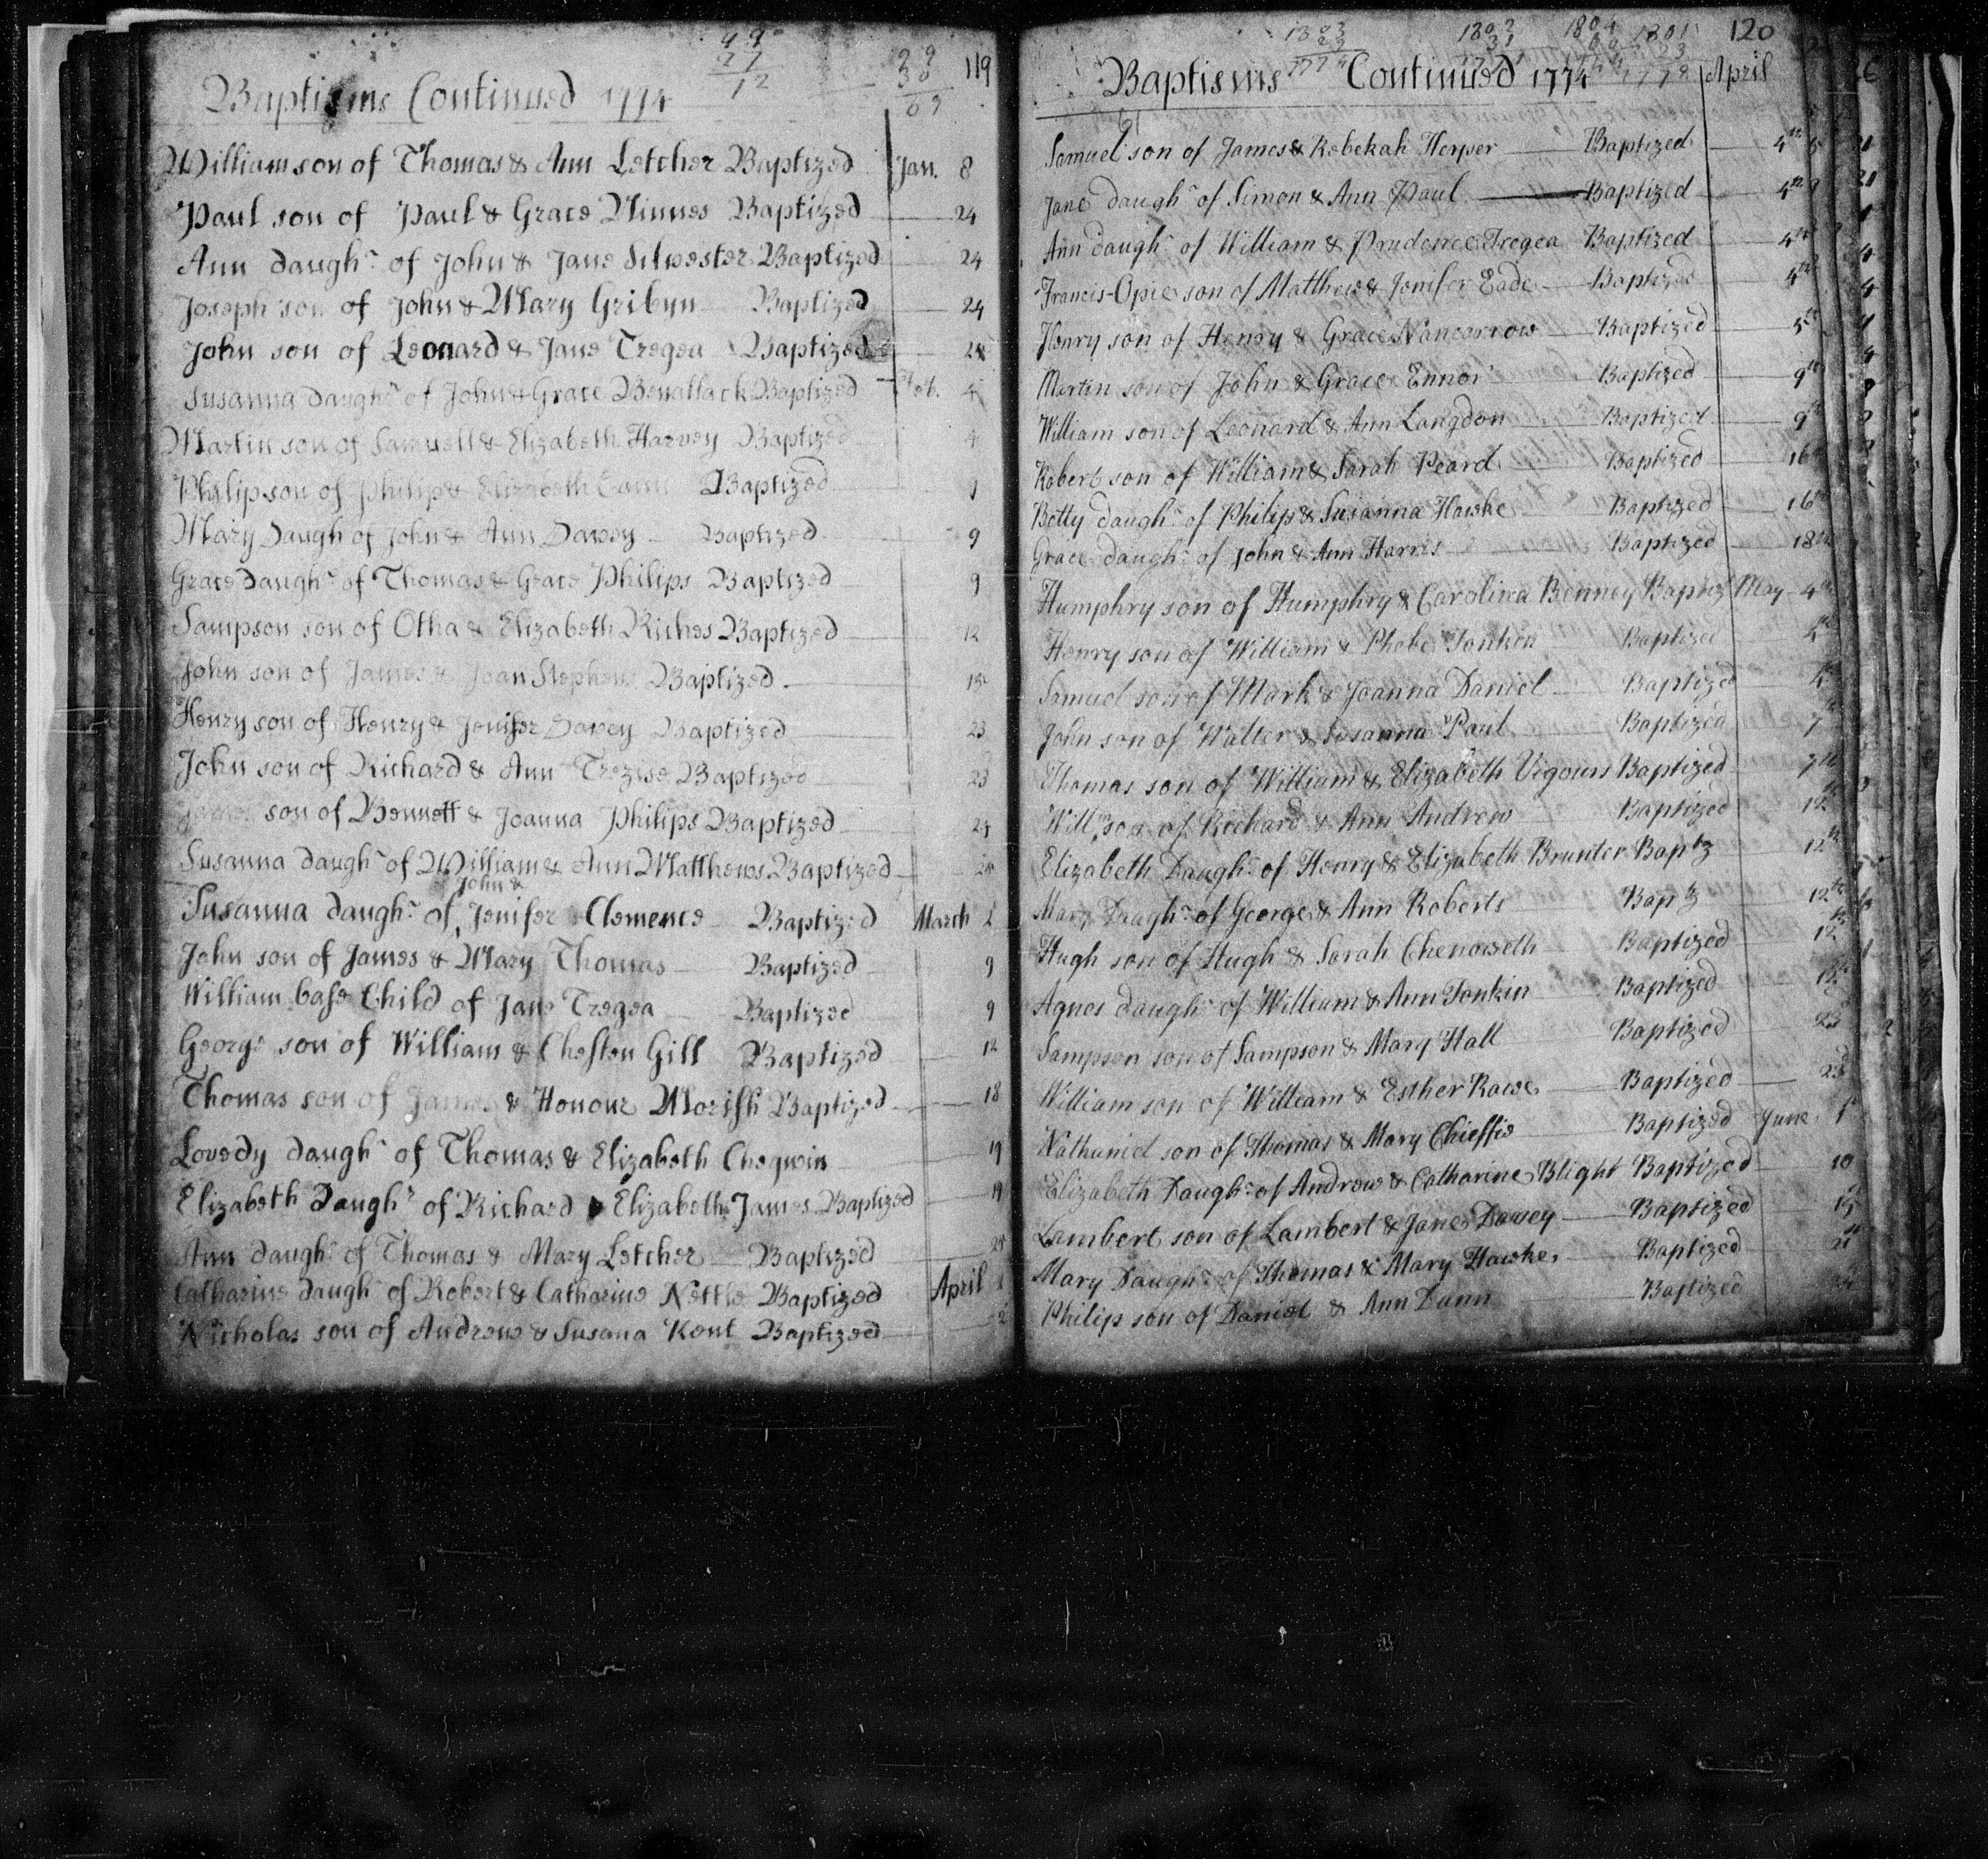 99
27
12
39
30
69
119
Baptisms Continued 1774
William son of Thomas & Ann Letcher Baptized Jan. 8
Paul son of Paul & Grace Ninnes Baptized 24
Ann daughr of John & Jane Silvester Baptized 24
Joseph son of John & Mary Gribyn Baptized 24
John son of Leonard & Jane Tregea Baptized
Susanna daughr of John & Grace Benallack Baptized Feb. 4
Martin son of Samuell & Elizabeth Harvey Baptized 4
Philip son of Philip & Elizabeth Baptized 9
Mary Daugh of John & Ann Davey Baptized 9
Grace daughr of Thomas & Grace Philips Baptized 9
Sampson son of Otha & Elizabeth Riches Baptized 12
John son of James & Joan Stephens Baptized
Henry son of Henry & Jenifer Davey Baptized 23
John son of Richard & Ann Trezise Baptized 23
son of Bennett & Joanna Philips Baptized
Susanna daughr of William & Ann Matthews Baptized
John &
Susanna daughr of Jenifer Clemence Baptized March
John son of James & Mary Thomas Baptized 9
William base Child of Jane Tregea Baptized 9
George son of William & Chesten Gill Baptized 12
Thomas son of James & Honour Morish Baptized 18
Lovedy daughr of Thomas & Elizabeth Chegwin 19
Elizabeth Daughr of Richard & Elizabeth James Baptized 19
Ann daughr of Thomas & Mary Letcher Baptized
Catharine daughr of Robert & Catharine Nettle Baptized April
Nicholas son of Andrew & Susana Kent Baptized
120
Baptisms Continued 1774 April
Samuel son of James & Rebekah Harper Baptized 4th
Jane daughr of Simon & Ann Paul Baptized 4th
Ann daughr of William & Prudence Tregea Baptized 4th
Francis-Opie son of Matthew & Jenifer Eade Baptized 4th
Henry son of Henry & Grace Nancarrow Baptized 5th
Martin son of John & Grace Ennor Baptized 9th
William son of Leonard & Ann Langdon Baptized 9th
Robert son of William & Sarah Peard Baptized 16
Betty daughr of Philip & Susanna Hawke Baptized 16
Grace daughr of John & Ann Harris Baptized 18th
Humphry son of Humphry & Carolina Benney Baptiz May 4th
Henry son of William & Phebe Tonkin Baptized 4th
Samuel son of Mark & Joanna Daniel Baptized 4th
John son of Walter & Susanna Paul Baptized 7
Thomas son of William & Elizabeth Vigours Baptized 7th
Willm son of Richard & Ann Andrew Baptized 12th
Elizabeth Daughr of Henry & Elizabeth Brunter Baptz 12th
Mary Daughr of George & Ann Roberts Baptz 12th
Hugh son of Hugh & Sarah Chenoweth Baptized 12th
Agnes daughr of William & Ann Tonkin Baptized 12th
Sampson son of Sampson & Mary Hall Baptized 23
William son of William & Esther Rawe Baptized 23d
Nathaniel son of Thomas & Mary Chieffie Baptized June 1
Elizabeth Daughr of Andrew & Catharine Blight Baptized 10
Lambert son of Lambert & Jane Davey Baptized
Mary Daughr of Thomas & Mary Hawke Baptized
Philip son of Daniel & Ann Dunn Baptized